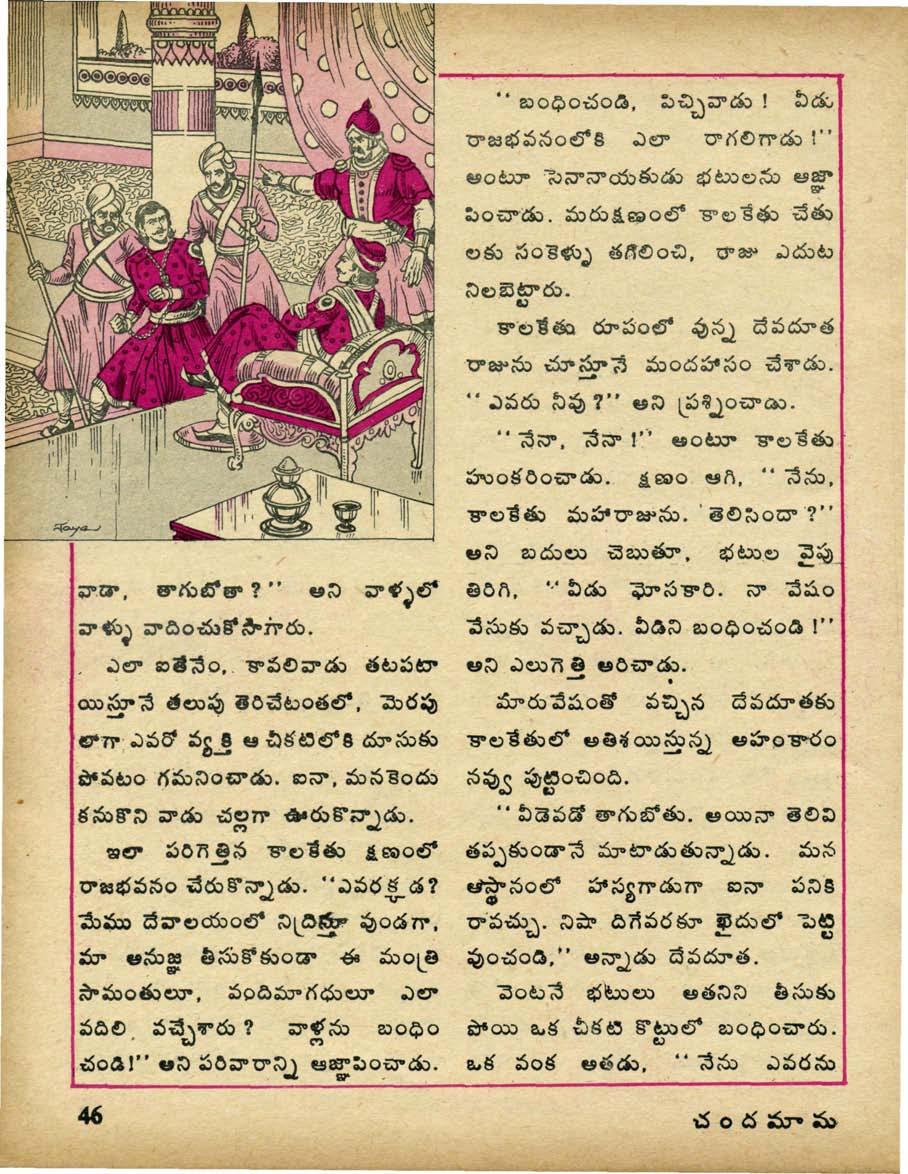 వాడా, తాగుబోతా?" అని వాళ్ళలో
వాళ్ళు వాదించుకోసాగారు.
ఎలా ఐతేనేం, కావలివాడు తటపటా
యిస్తూనే తలుపు తెరిచేటంతలో, మెరపు
లాగా ఎవరో వ్యక్తి ఆ చీకటిలోకి దూసుకు
పోవటం గమనించాడు. ఐనా, మనకెందు
కనుకొని వాడు చల్లగా ఊరుకొన్నాడు.
ఇలా పరిగెత్తిన కాలకేతు క్షణంలో
రాజభవనం చేరుకొన్నాడు. "ఎవరక్కడ?
మేము దేవాలయంలో నిద్రిస్తూ వుండగా,
మా అనుజ్ఞ తీసుకోకుండా ఈ మంత్రి
సామంతులూ, వందిమాగధులూ ఎలా
వదిలి వచ్చేశారు? వాళ్లను బంధిం
చండి!" అని పరివారాన్ని ఆజ్ఞాపించాడు.
"బంధించండి, పిచ్చివాడు! వీడు
రాజభవనంలోకి ఎలా రాగలిగాడు!"
అంటూ సేనానాయకుడు భటులను ఆజ్ఞా
పించాడు. మరుక్షణంలో కాలకేతు చేతు
లకు సంకెళ్ళు తగిలించి, రాజు ఎదుట
నిలబెట్టారు.
కాలకేతు రూపంలో వున్న దేవదూత
రాజును చూస్తూనే మందహాసం చేశాడు.
"ఎవరు నీవు?" అని ప్రశ్నించాడు.
"నేనా, నేనా!" అంటూ కాలకేతు
హుంకరించాడు. క్షణం ఆగి, "నేను,
కాలకేతు మహారాజును. తెలిసిందా?"
అని బదులు చెబుతూ, భటుల వైపు
తిరిగి, "వీడు మోసకారి. నా వేషం
వేసుకు వచ్చాడు. వీడిని బంధించండి!"
అని ఎలుగెత్తి అరిచాడు.
మారువేషంతో వచ్చిన దేవదూతకు
కాలకేతులో అతిశయిస్తున్న అహంకారం
నవ్వు పుట్టించింది.
"వీడెవడో తాగుబోతు. అయినా తెలివి
తప్పకుండానే మాటాడుతున్నాడు. మన
ఆస్థానంలో హాస్యగాడుగా ఐనా పనికి
రావచ్చు. నిషా దిగేవరకూ ఖైదులో పెట్టి
వుంచండి," అన్నాడు దేవదూత.
వెంటనే భటులు అతనిని తీసుకు
పోయి ఒక చీకటి కొట్టులో బంధించారు.
ఒక వంక అతడు, "నేను ఎవరను
46
చందమామ